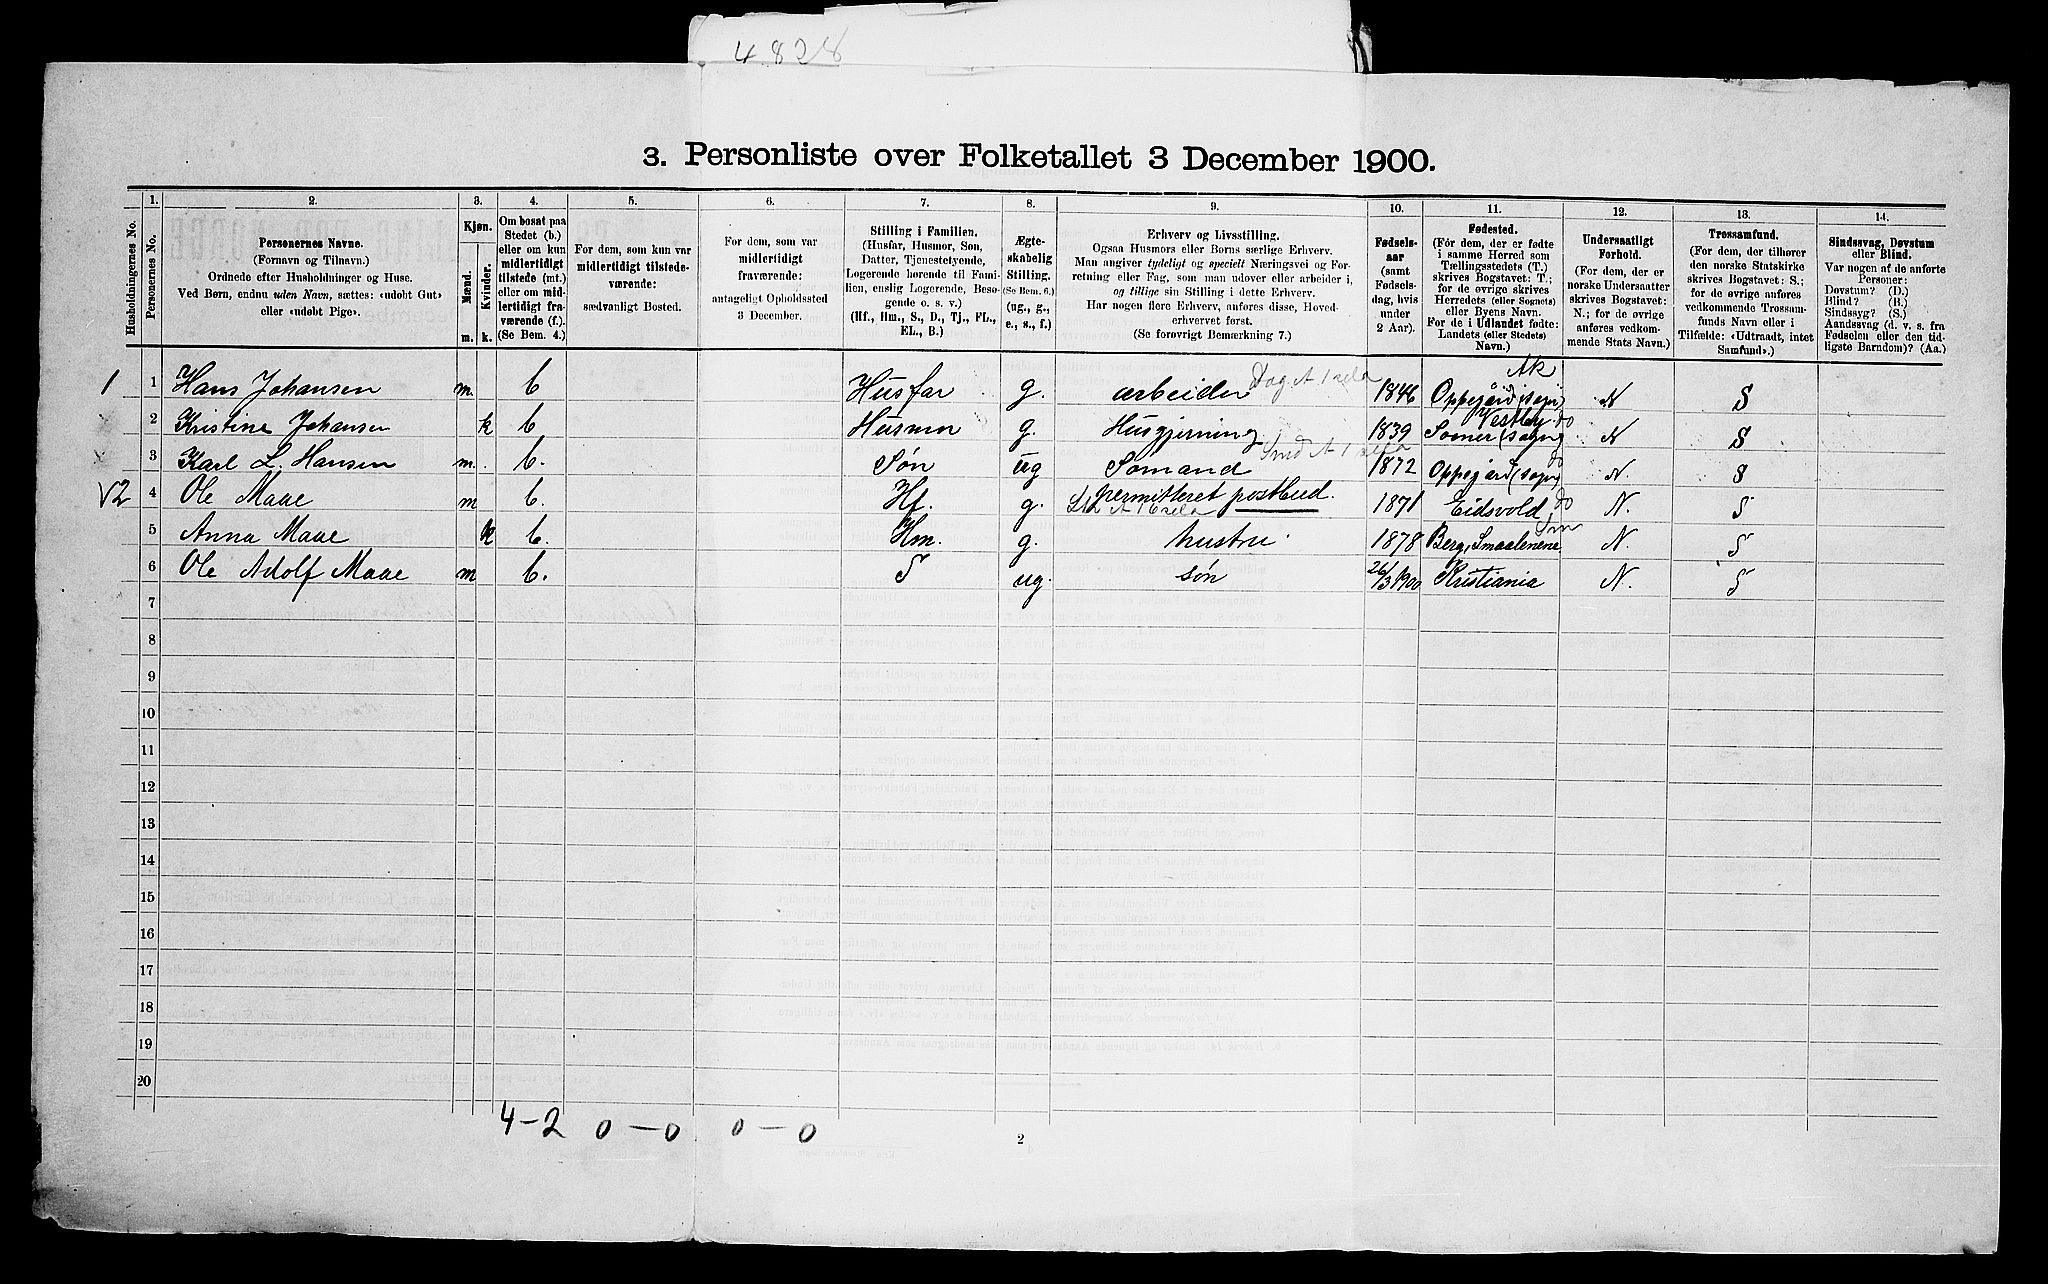 4828
3. Personliste over Folketallet 3 December 1900.
Husholdningernes No.
1.
Personernes No.
2.
Personernes Navne.
(Fornavn og Tilnavn.)
Ordnede efter Husholdninger og Huse.
Ved Børn, endnu uden Navn, sættes: «udøbt Gut»
eller «udøbt Pige».
3.
Kjøn.
Mænd.
Kvinder.
m.
k.
4.
Om bosat paa
Stedet (b.)
eller om kun
midlertidigt
tilstede (mt.)
eller om mid-
lertidigt fra-
værende (f.)
(Se Bem. 4.)
5.
For dem, som kun var
midlertidigt tilstede-
værende:
sædvanligt Bosted.
6.
For dem, som var
midlertidigt
fraværende:
antageligt Opholdssted
3 December.
7.
Stilling i Familien.
(Husfar, Husmor, Søn,
Datter, Tjenestetyende,
Logerende hørende til Fami-
lien, enslig Logerende, Besø-
gende o. s. v.)
(Hf., Hm., S., D., Tj., FL.,
EL., B.)
8.
Ægte-
skabelig
Stilling.
(Se Bem. 6.)
(ug., g.,
e., s., f.)
9.
Erhverv og Livsstilling.
Ogsaa Husmors eller Børns særlige Erhverv.
Man angiver tydeligt og specielt Næringsvei og For-
retning eller Fag, som man udøver eller arbeider i,
og tillige sin Stilling i dette Erhverv.
Har nogen flere Erhverv, anføres disse, Hoved-
erhvervet først.
(Se forøvrigt Bemærkning 7.)
10.
Fødsels-
aar
(samt
Fødsels-
dag, hvis
under
2 Aar).
11.
Fødested.
(For dem, der er fødte
i samme Herred som
Tællingsstedets (T.)
skrives Bogstavet: T.;
for de øvrige skrives
Herredets (eller Sognets)
eller Byens Navn.
For de i Udlandet fødte:
Landets (eller Stedets)
Navn.)
12.
Undersaatligt
Forhold.
(For dem, der er
norske Undersaatter
skrives Bogstavet:
N.; for de øvrige
anføres vedkom-
mende Stats Navn.)
13.
Trossamfund.
(For dem, der tilhører
den norske Statskirke
skrives Bogstavet: S.;
for de øvrige anføres
vedkommende Trossam-
funds Navn eller i
Tilfælde: «Udtraadt, intet
Samfund».)
14.
Sindssvag, Døvstum
eller Blind.
Var nogen af de anførte
Personer:
Døvstum? (D.)
Blind? (B.)
Sindssyg? (S.)
Aandssvag (d. v. s. fra
Fødselen eller den tid-
ligste Barndom)? (Aa.)
1 1 Hans Johansen m. b Husfar g. arbeider 1846 Oppegård (sogn) Ak N S
2 Kristine Johansen k b Husmor g. Husgjerning 1839 Soner (sogn) Vestby do N S
3 Karl L. Hansen m. b. Søn ug Sømand 1872 Oppegård (sogn) do N. S
√2 4 Ole Maae m b. Hf. g. permitteret postbud. 1871 Eidsvold, do N. S
5 Anna Maae k b. Hm. g. hustru. 1878 Berg, Smaalenene Sm N. S
6 Ole Adolf Maae m b. S ug. søn 26/3 1900 Kristiania N. S
7
8
9
10
11
12
13
14
15
16
17
18
19
20
4-2 0-0 0-0
2